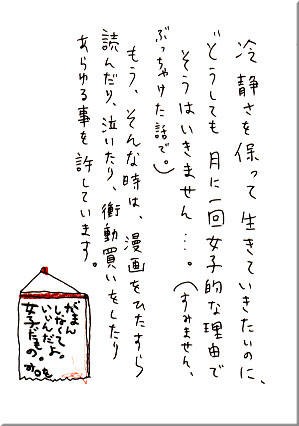 冷静さを保って生きていきたいのに、
どうしても月に一回女子的な理由で
そうはいきません…。(すみません、
ぶっちゃけた話で。)
もう、そんな時は、漫画をひたすら
読んだり、泣いたり、衝動買いをしたり
あらゆる事を許しています。
がまん
しなくてよ
いいんだ
女子だもの。